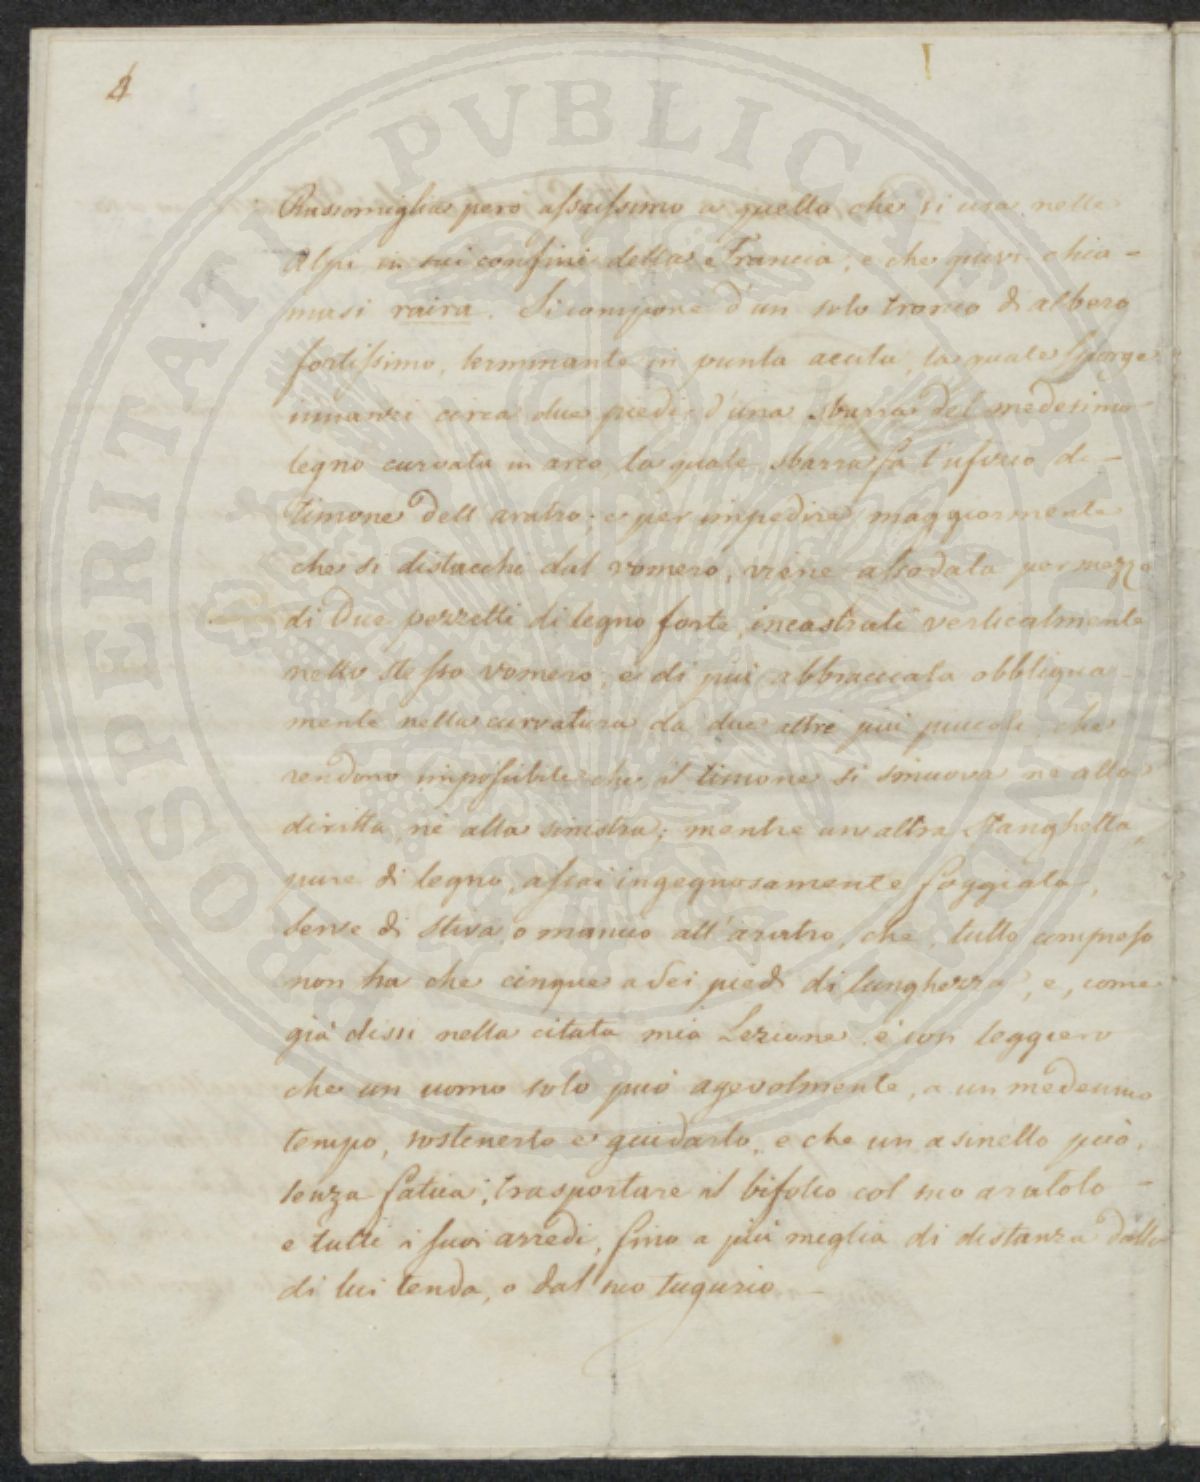 4
Rassomiglia però assaissimo a quello che si usa nelle
Alpi in sui confini della Francia, e che quivi chia-
masi raira. Si compone d'un solo tronco di albero
fortissimo, terminante in punta acuta, la quale sporge
innanzi circa due piedi d'una sbarra del medesimo
legno curvata in arco, la quale sbarra fa l'ufficio di
timone dell'aratro; e per impedire maggiormente
che si distacchi dal vomero, viene assodata per mezzo
di due pezzetti di legno forte, incastrati verticalmente
nello stesso vomero, e di più abbracciata obbliqua-
mente nella curvatura da due altri più piccoli, che
rendono impossibile che il timone si smuova nè alla
diritta, nè alla sinistra; mentre un'altra stanghetta,
pure di legno, assai ingegnosamente foggiata,
serve di stiva, o manico all'aratro, che, tutto compreso
non ha che cinque a sei piedi di lunghezza, e, come
già dissi nella citata mia Lezione, è così leggiero
che un uomo solo può agevolmente, a un medesimo
tempo, sostenerlo e guidarlo, e che un asinello può,
senza fatica, trasportare il bifolco col suo aratolo
e tutti i suoi arredi, fino a più miglia di distanza dalla
di lui tenda, o dal suo tugurio.
PROSPERITATI PVBLICAE AVGENDAE